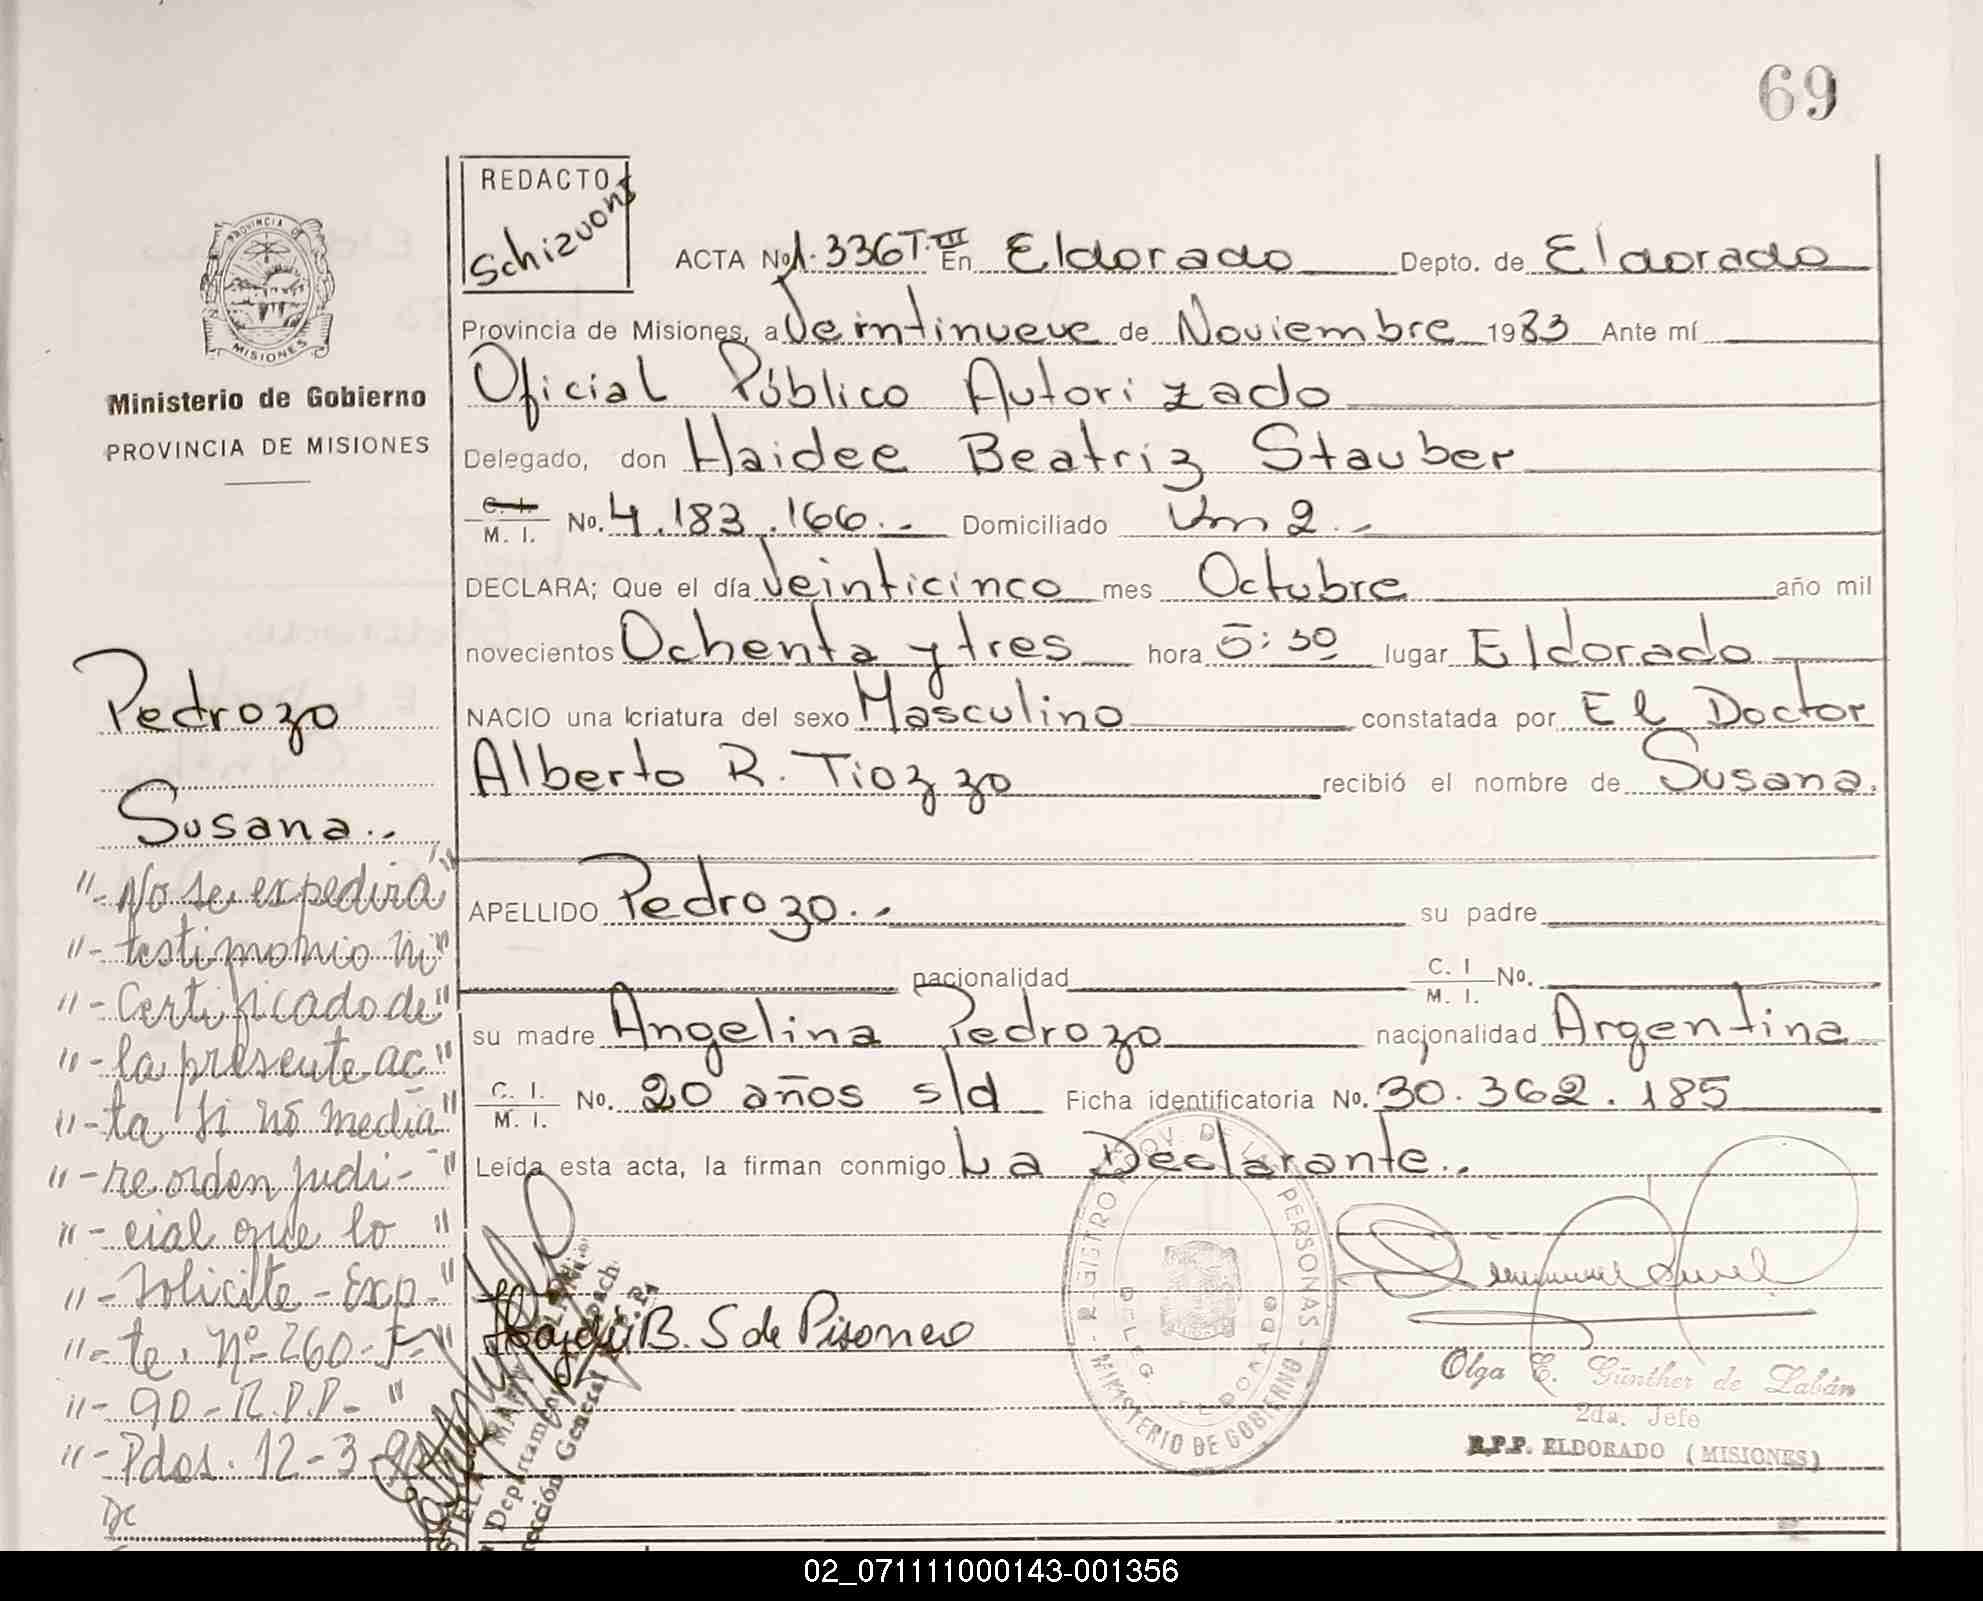 69
REDACTO
Schizuoni
PROVINCIA DE
MISIONES
Ministerio de Gobierno
PROVINCIA DE MISIONES
ACTA No 1.336 T.III En Eldorado Depto. de Eldorado
Provincia de Misiones, a Veintinueve de Noviembre 1983 Ante mí
Oficial Público Autorizado
Delegado, don Haidee Beatriz Stauber
C. I. M. I. No. 4.183.166.- Domiciliado Km 2.-
DECLARA; Que el día Veinticinco mes Octubre año mil
novecientos Ochenta y tres hora 5:30 lugar Eldorado
NACIO una criatura del sexo Masculino constatada por El Doctor
Alberto R. Tiozzo recibió el nombre de Susana.
APELLIDO Pedrozo.- su padre
nacionalidad C. I M. I. No.
su madre Angelina Pedrozo nacionalidad Argentina
C. I. M. I. No. 20 años s/d Ficha identificatoria No. 30.362.185
Leída esta acta, la firman conmigo La Declarante.-
Pedrozo
Susana.-
"- No se expedirá "
"- testimonio ni "
"- Certificado de "
"- la presente ac "
"- ta si no media "
"- re orden judi- "
"- cial que lo "
"- solicite - Exp- "
"- te. Nº 260-F- "
"- 90 - R.P.P- "
"- Pdas. 12-3-
B. S de Pisoneo
REGISTRO PROV. DE LAS PERSONAS
MINISTERIO DE GOBIERNO
DELEG. ELDORADO
Olga E. Günther de Labán
2da. Jefe
R.P.P. ELDORADO (MISIONES)
Departamento
Dirección General
02_071111000143-001356